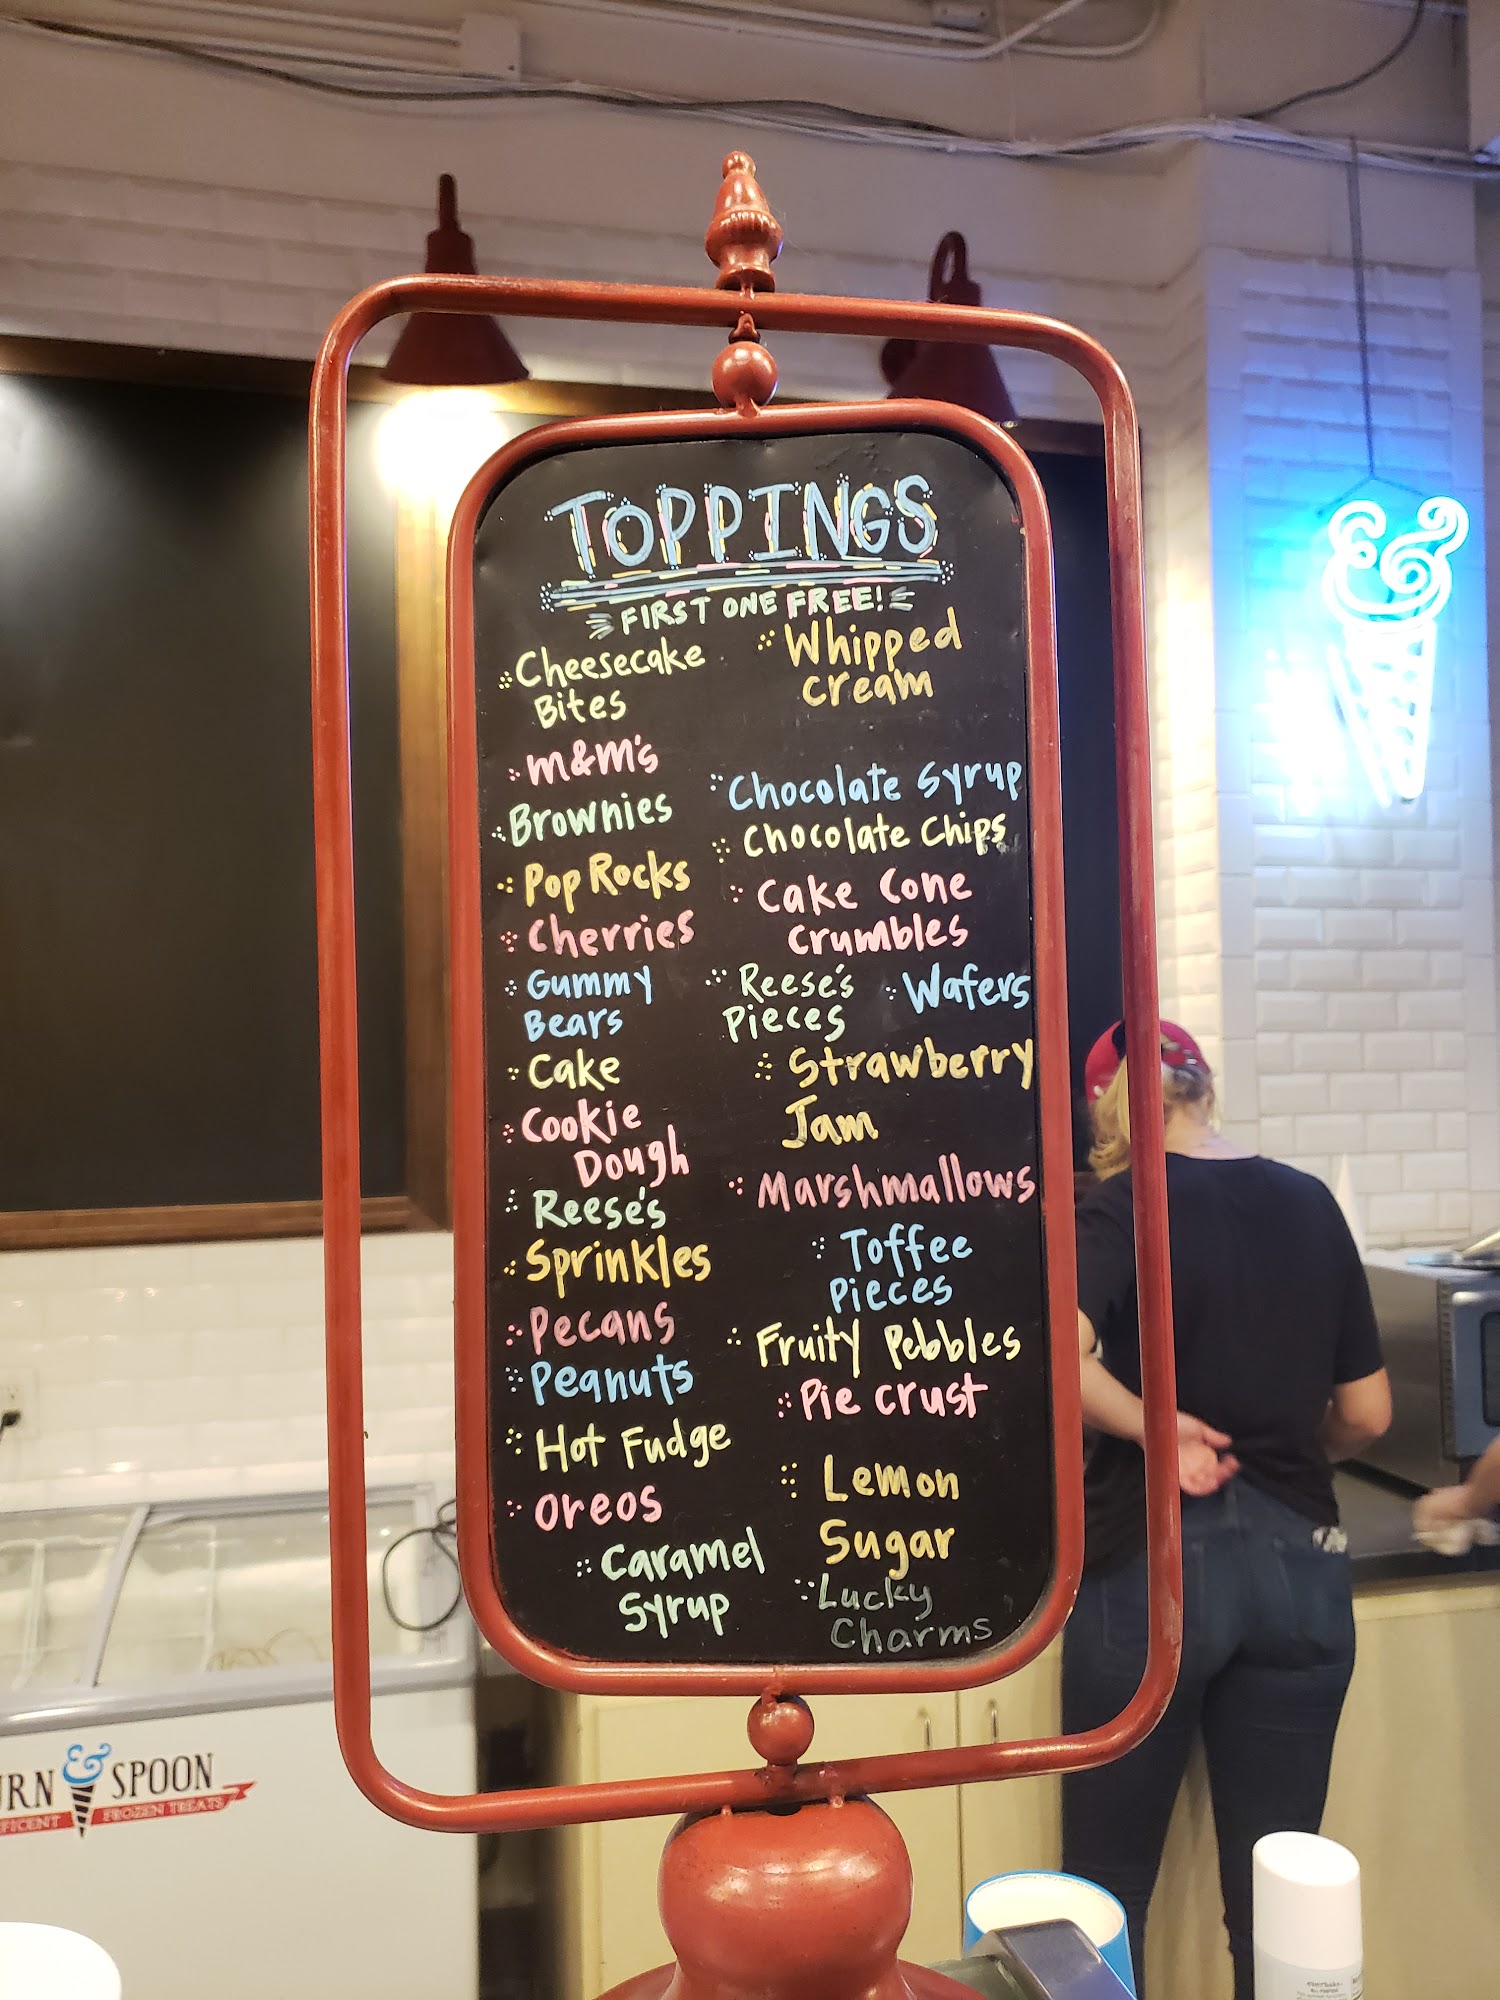 TOPPINGS
FIRST ONE FREE!
Cheesecake
Bites
M&M's
Brownies
Pop Rocks
Cherries
Gummy
Bears
Cake
Cookie
Dough
Reese's
Sprinkles
Pecans
Peanuts
Hot Fudge
Oreos
Caramel
Syrup
Whipped
Cream
Chocolate Syrup
Chocolate Chips
Cake Cone
Crumbles
Reese's
Pieces
Wafers
Strawberry
Jam
Marshmallows
Toffee
Pieces
Fruity Pebbles
Pie Crust
Lemon
Sugar
Lucky
Charms
&
URN & SPOON
FICENT FROZEN TREATS